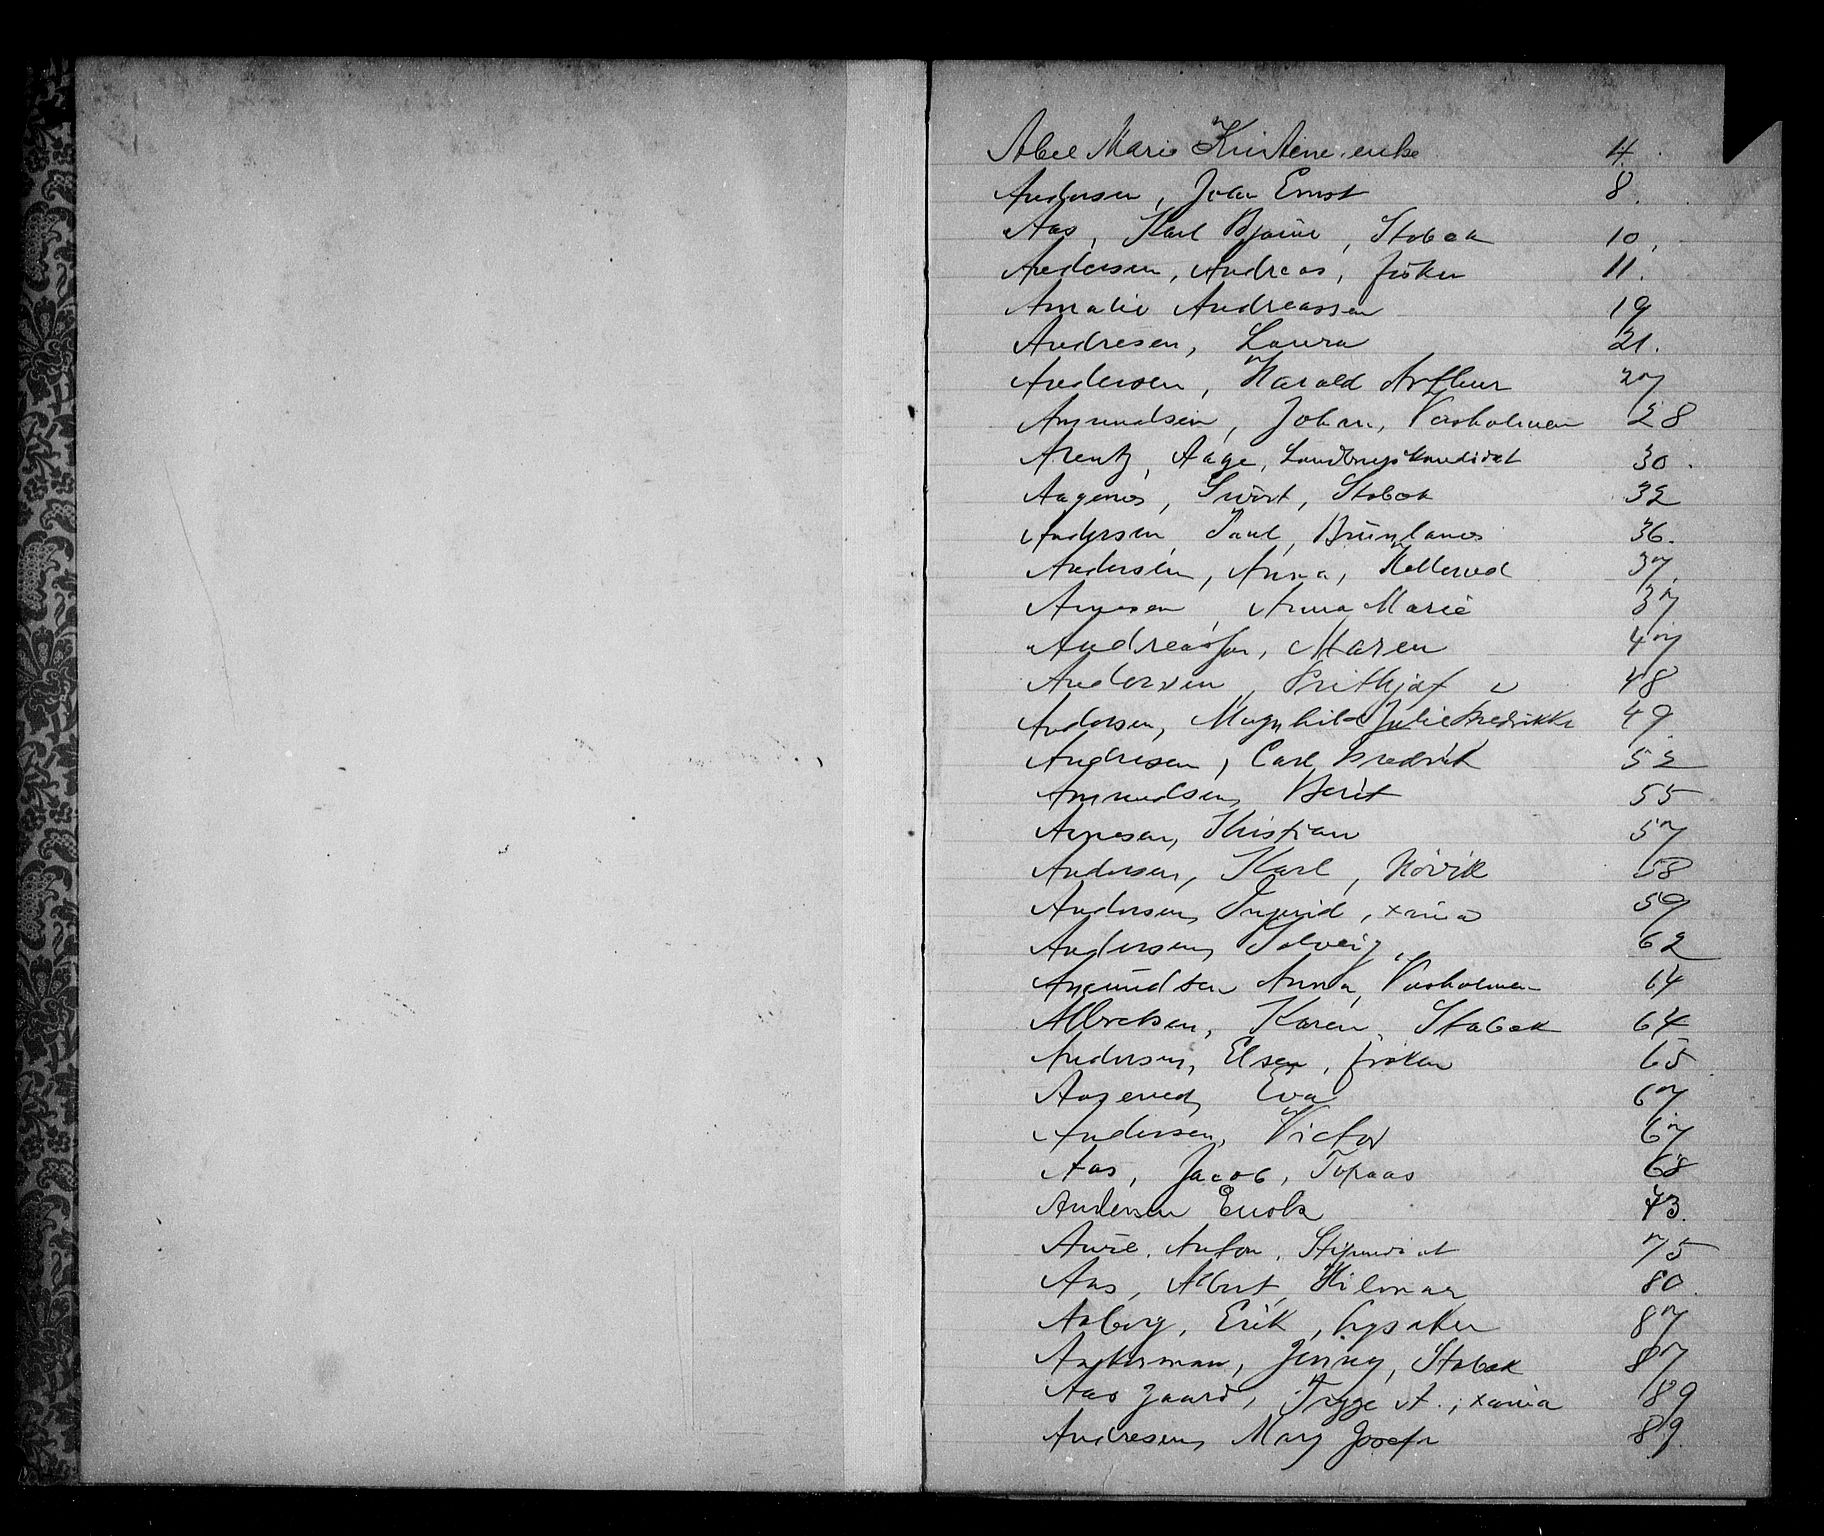 Abel Marie Kristine enke 4.
Andersen, Johan Ernst 8.
Aas, Karl Bjarne, Stabæk 10.
Andersen, Andreas, frøken 11.
Amalie Andreassen 19
Andresen, Laura 21.
Andersen, Harald Arthur 27
Amundsen, Johan, Vasholmen 28
Arentz, Aage, Landbrugskandidat 30.
Aagenes, Sivert, Stabæk 32
Andersen, Paul, Brunlanes 36.
Andersen, Anna, 37.
Arnesen Anna Marie 37
Andreassen, Maren 47
Andersen, Frithjof 48
Andersen, Magnhild Julie Fredrikke 49.
Andresen, Carl Fredrik 52
Amundsen, Berit 55
Arnesen, Kristian 57
Andersen, Karl, Høvik 58
Andersen, Ingrid, xania 59
Andersen, Solveig, 62
Amundsen Anna, Vasholmen 64
Albretsen, Karen, Stabæk 64
Andersen, Elsa, frøken 65
Eva 67
Andersen, Victor 67
Aas, Jacob, Topaas 68
Andersen Enok 73.
Aure, Anton, Stipendiat 75
Aas, Albert, Hilmar 80.
Aaberg, Erik, Lysaker 87
Ankerman, Jenny, Stabæk 87
Aasgaard, Trygve A., xania 89
Andresen, Mary Josefa 89.